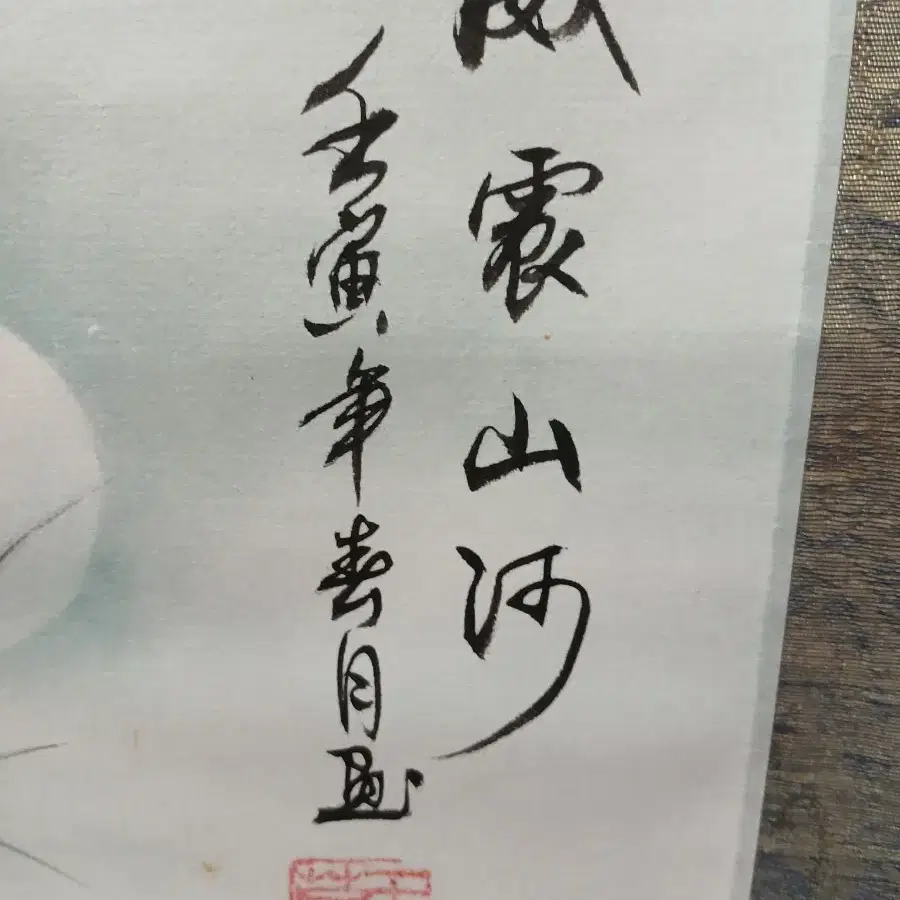 威震山河
壬寅年春月画